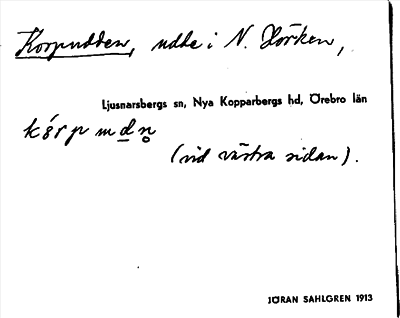 Korpudden, udde i N. Hörken,
Ljusnarsbergs sn, Nya Kopparbergs hd, Örebro län
(vid västra sidan).
JÖRAN SAHLGREN 1913